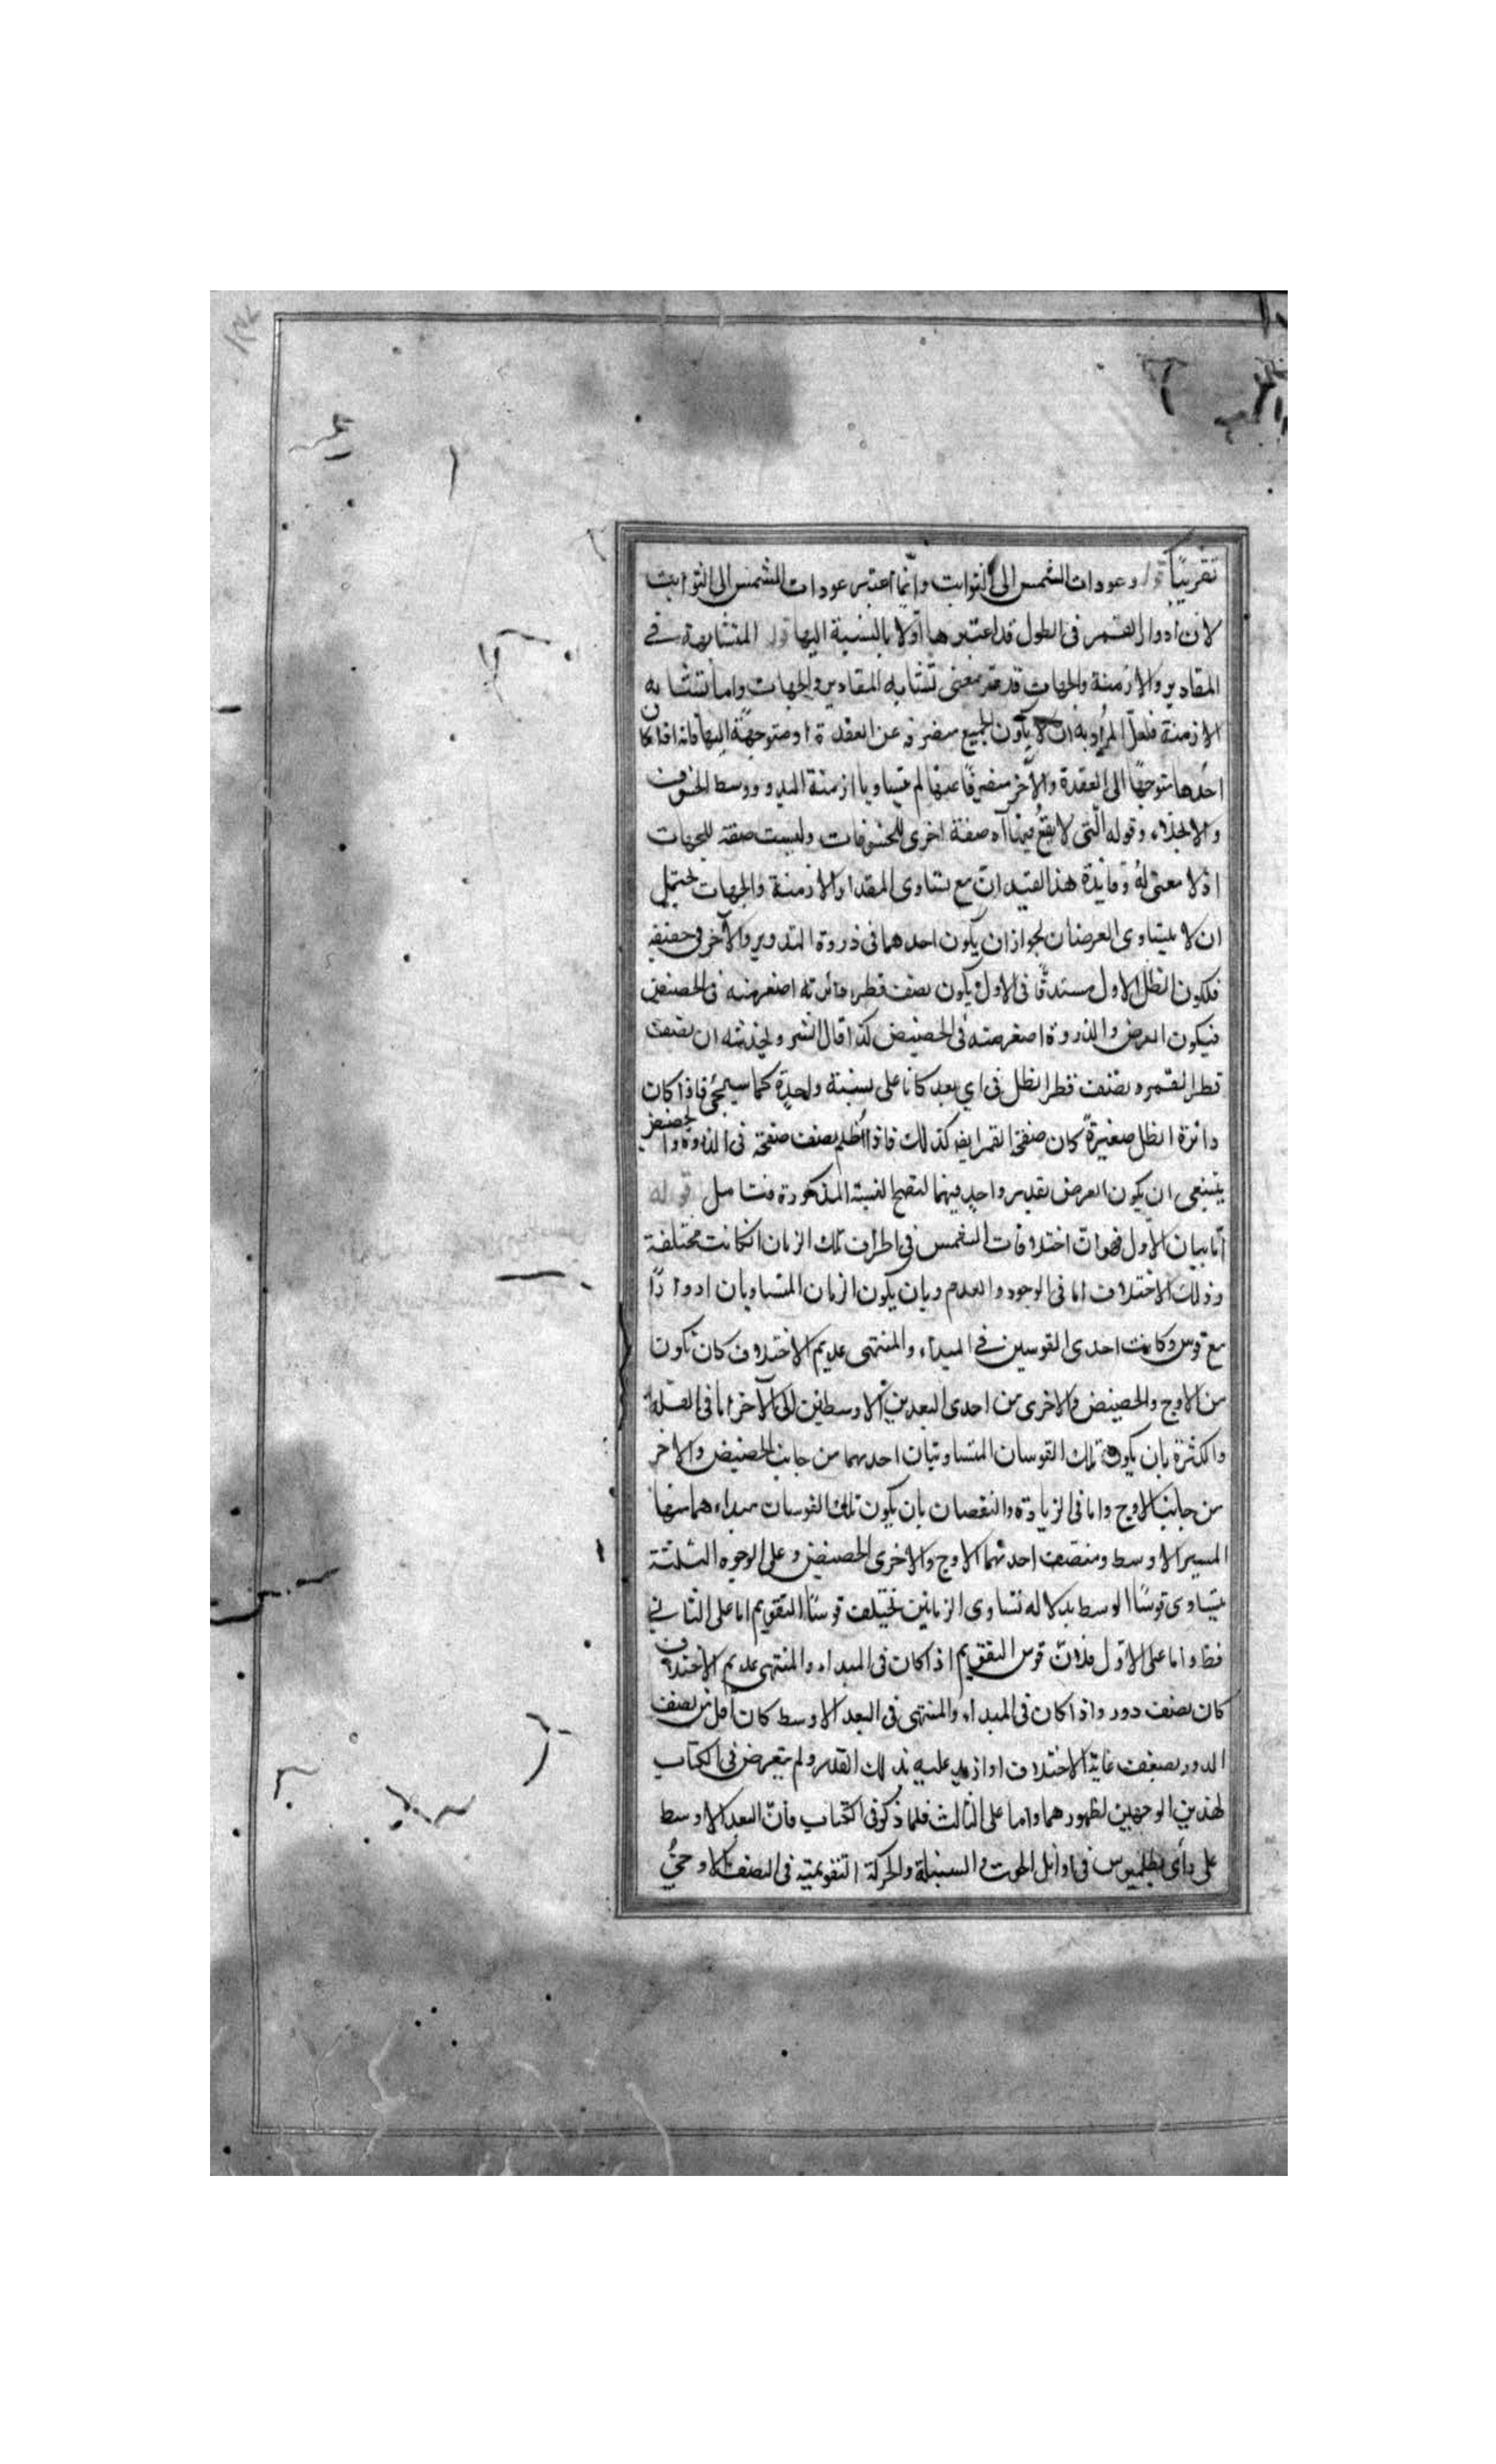 تقريبًا قوله وعودات الشمس الى الثوابت وانّما اعتبر عودات الشمس الى الثوابت
لان ادوار القمر فى الطول قد اعتبرها اوّلا بالنسبة اليها قوله المتشابهة فى
المقادير والازمنة والجهات قد مر معنى تشابه المقادير والجهات واما تشابه
الازمنة فلعلّ المراد به ان لا يكون الجميع منصرفه عن العقدة او متوجهة اليها فانه اذا كان
احدها متوجهًا الى العقدة والآخر منصرفًا عنها لم يتساويا ازمنة البدو ووسط الخسوف
والانجلاء وقوله الّتى لا يقع فيها آه صفة اخرى للخسوفات وليست صفة للجهات
اذ لا معنى له وفايدة هذا القيد انّ مع تساوى المقدار والازمنة والجهات يحتمل
ان لا يتساوى العرضان لجواز ان يكون احدهما فى ذروة التدوير والآخر فى حضيضه
فيكون الظل الاول مستدقًا فى الاول ويكون نصف قطر دائرته اصغر منه فى الحضيض
فيكون العرض والذروة اصغر منه فى الحضيض كذا قال الشر ويخدشه ان نصف
قطر القمر ونصف قطر الظل فى اى بعد كانا على نسبة واحدة كما سيجئ فاذا كان
دائرة الظل صغيرةً كان صفحة القمر ايضا كذلك فاذا اظلم نصف صفحته فى الذروة والحضيض
ينبغى ان يكون العرض بقدر واحد فيهما لتصح النسبة المذكورة فتامل قوله
اما بيان الاول فهو انّ اختلافات الشمس فى اطراف تلك الزمان ان كانت مختلفة
وذلك الاختلاف اما فى الوجود والعدم وبان يكون الزمان المتساويان ادوارًا
مع قوس وكانت احدى القوسين فى المبداء والمنتهى عديم الاختلاف كان تكون
من الاوج والحضيض والاخرى من احدى البعدين الاوسطين الى الآخر اما فى القلة
والكثرة بان يكون تلك القوسان المتساويتان احديهما من جانب الحضيض والاخر
من جانب الاوج واما فى الزيادة والنقصان بان يكون تلك القوسان مبداء هما منها
المسير الاوسط ومنتصف احدتهما الاوج والاخرى الحضيض وعلى الوجوه الثلثة
يتساوى قوسًا الوسط بدلالة تساوى الزمانين تختلف قوسًا التقويم اما على الثانى
فظ واما على الاوّل فلانّ قوس التقويم اذا كان فى المبداء والمنتهى عديم الاختلاف
كان نصف دور واذا كان فى المبداء والمنتهى فى البعد الاوسط كان اقل من نصف
الدور بضعف غاية الاختلاف او ازيد عليه بذلك القدر ولم يتعرض فى الكتاب
لهذين الوجهين لظهورهما واما على الثالث فلما ذكر فى الكتاب فانّ البعد الاوسط
على رأى بطلميوس فى اوائل الحوت والسنبلة والحركة التقويمية فى النصف الاوجىّ